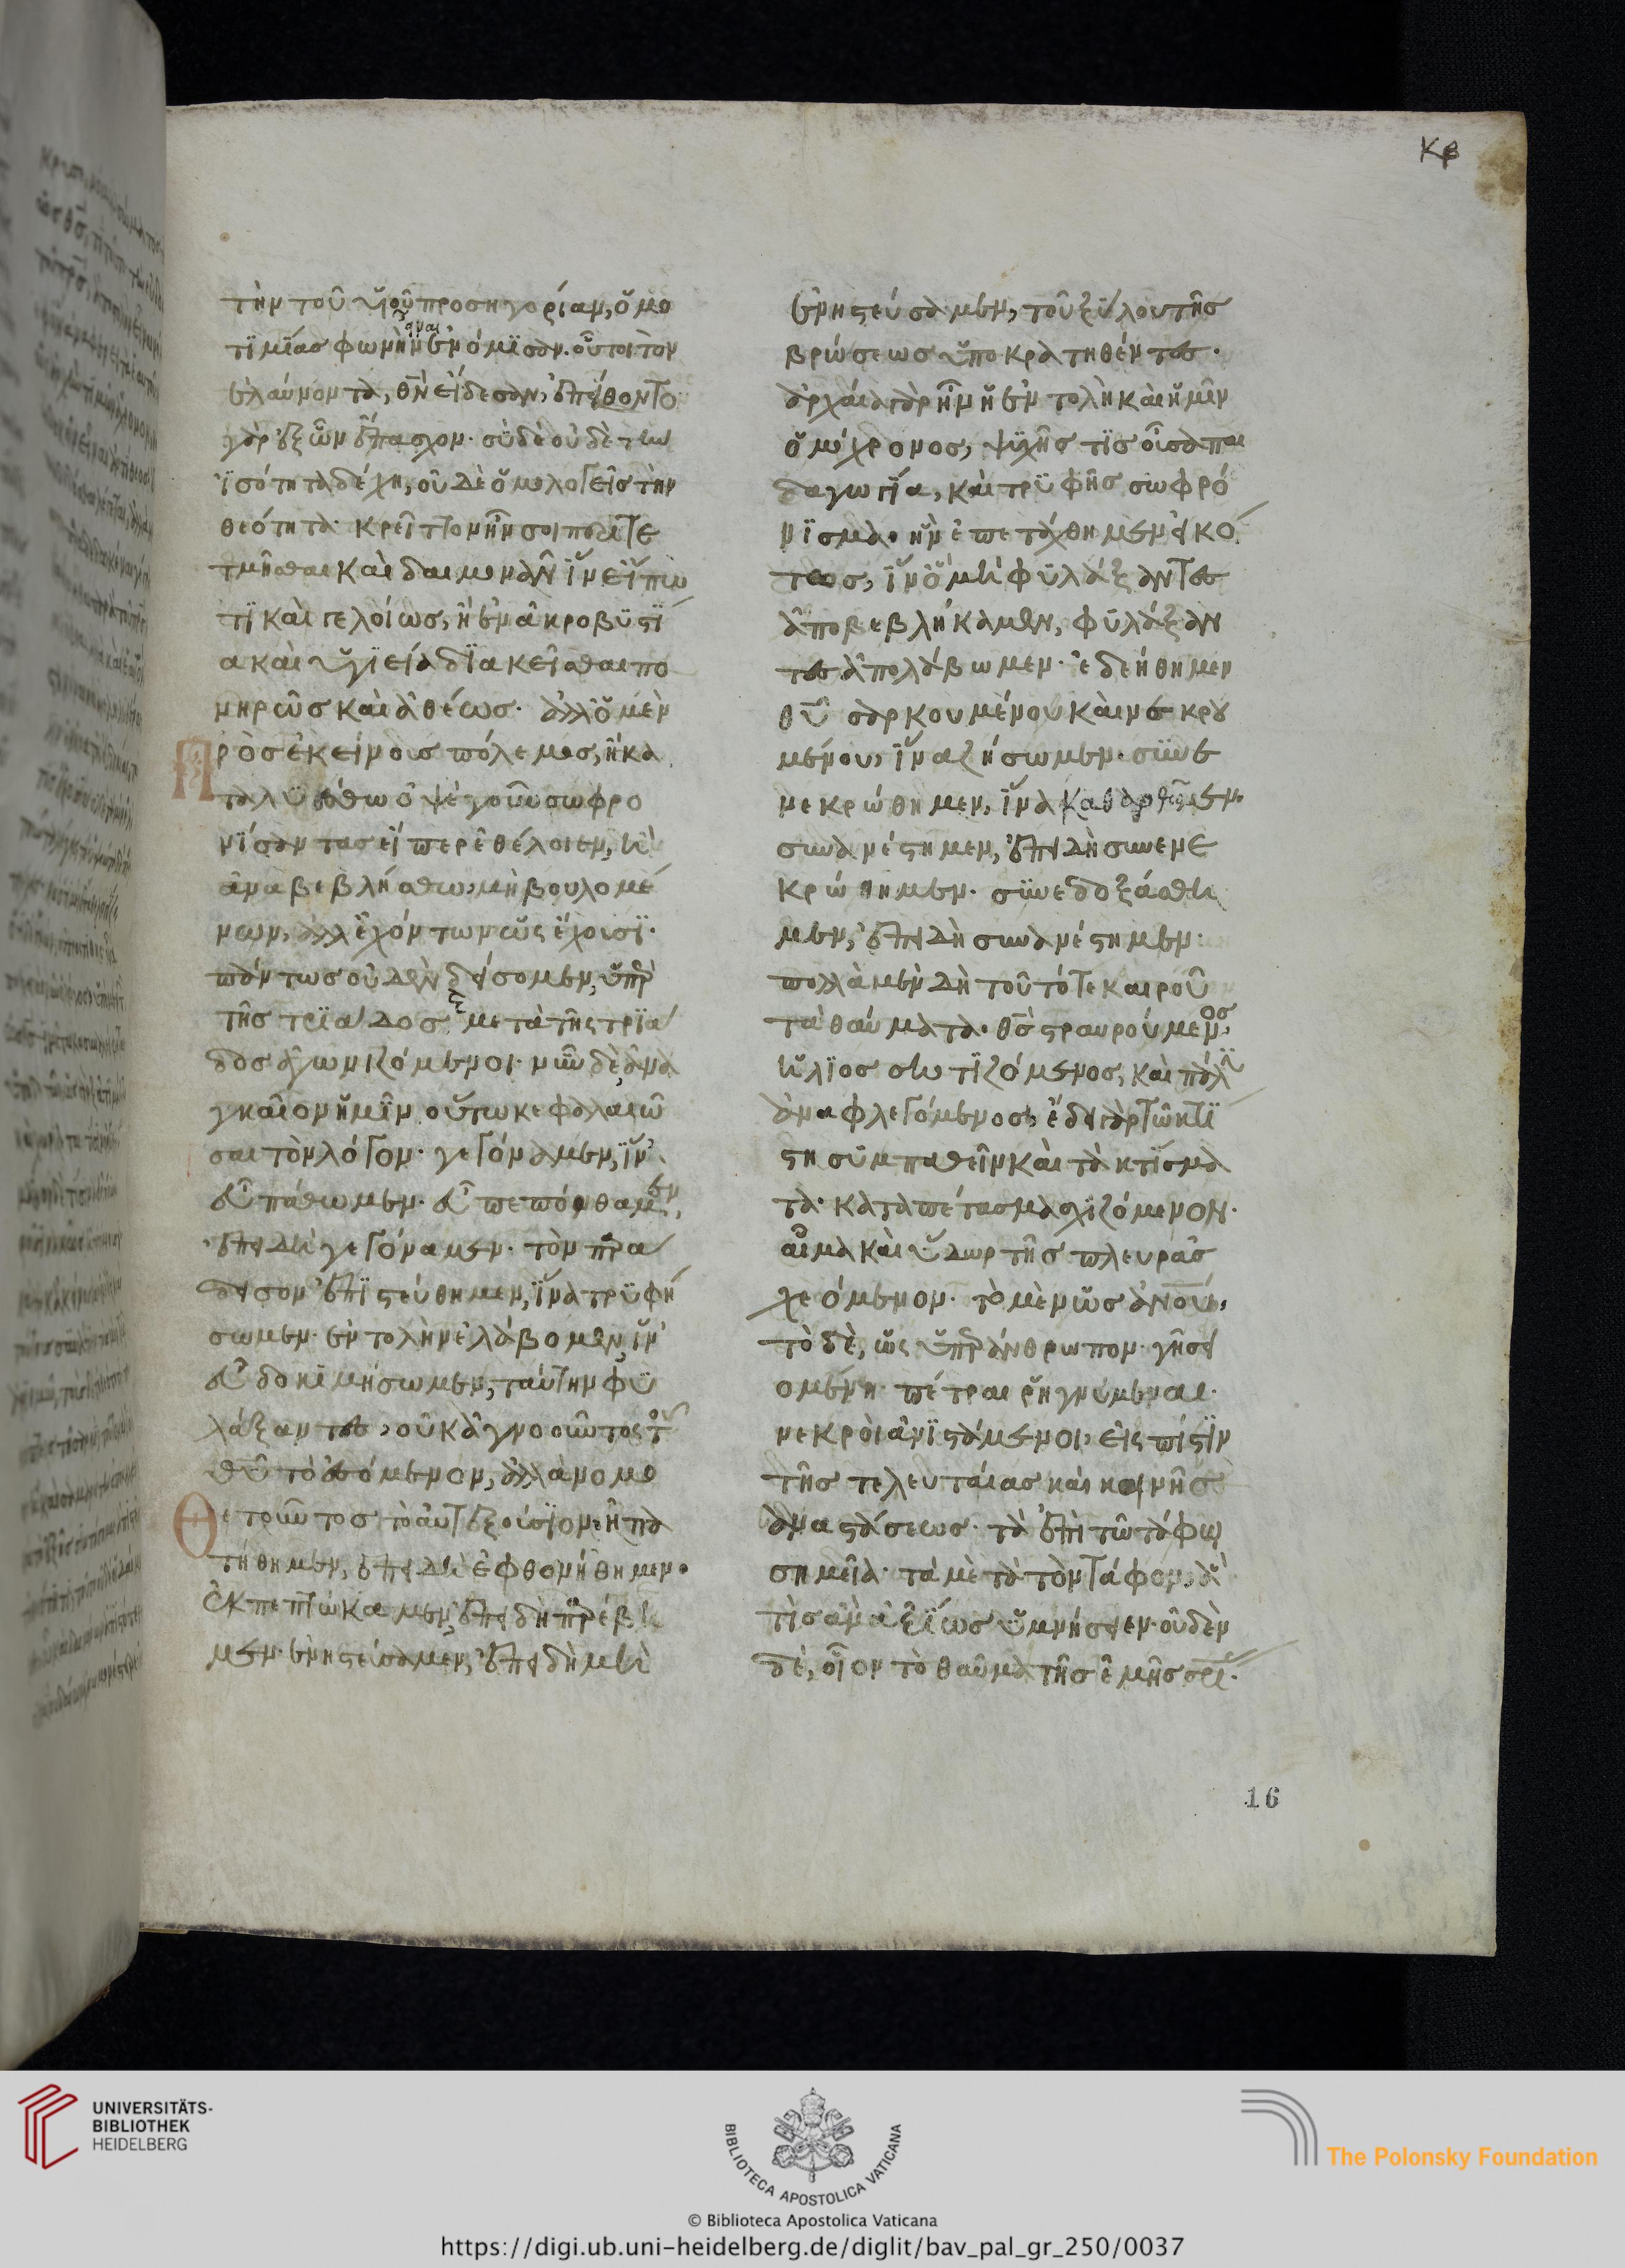 κβ
τὴν τοῦ υἱοῦ προσηγορίαν, ὁμο
τιμίας φωνὴν εἶναι ἐνόμισαν. οὗτοι τὸν
ἐλαύνοντα, θν εἴδεσαν, ἐπείθοντο
γὰρ ἐξ ὧν ἔπασχον. σὺ δὲ οὐδὲ τὴν
ἰσότητα δέχη, οὐδὲ ὁμολογεῖς τὴν
θεότητα. κρεῖττον ἦν σοι περιτε
τμῆσθαι καὶ δαιμονᾶν ἵν εἴπω
τι καὶ γελοίως, ἢ ἐν ἀκροβυστί
α καὶ ὑγιεία διακεῖσθαι πο
νηρῶς καὶ ἀθέως. ἀλλ ὁ μὲν
πρὸς ἐκείνους πόλεμος, ἢ κα
ταλυέσθω ὀψὲ γοῦν σωφρο
νίσαντας εἴπερ ἐθέλοιεν, ἢ
ἀναβεβλήσθω, μὴ βουλομέ
νων, ἀλλ ἐχόντων ὡς ἔχουσι.
πάντως οὐδὲν δείσομεν, ὑπὲρ
τῆς τριάδος, μετὰ τῆς τριά
δος ἀγωνιζόμενοι. νῦν δὲ ἀνα
γκαῖον ἡμῖν οὕτω κεφαλαιῶ
σαι τὸν λόγον. γεγόναμεν, ἵν
εὖ πάθωμεν. εὖ πεπόνθαμεν,
ἐπειδὴ γεγόναμεν. τὸν παρά
δεισον ἐπιστεύθημεν, ἵνα τρυφή
σωμεν. ἐντολὴν ἐλάβομεν, ἵν
εὐδοκιμήσωμεν, ταύτην φυ
λάξαντες, οὐκ ἀγνοοῦντος τοῦ
θυ τὸ ἐσόμενον, ἀλλὰ νομο
θετοῦντος τὸ αὐτεξούσιον. ἠπα
τήθημεν, ἐπειδὴ ἐφθονήθημεν.
ἐκπεπτώκαμεν, ἐπειδὴ παρέβη
μεν. ἐνηστεύσαμεν, ἐπειδὴ μὴ
ἐνηστεύσαμεν, τοῦ ξύλου τῆς
βρώσεως ὑποκρατηθέντες.
ἀρχαία γὰρ ἦν ἡ ἐντολὴ καὶ ἡμῖν
ὁμόχρονος, ψυχῆς τις οὖσα παι
δαγωγία, καὶ τρυφῆς σωφρό
νισμα. ἣν ἐπετάχθημεν εἰκό
τως, ἵν ὃ μὴ φυλάξαντες
ἀποβεβλήκαμεν, φυλάξαν
τες ἀπολάβωμεν. ἐδεήθημεν
θυ σαρκουμένου καὶ νεκρου
μένου, ἵνα ζήσωμεν. συνε
νεκρώθημεν, ἵνα καθαρθῶμεν.
συνανέστημεν, ἐπειδὴ συνενε
κρώθημεν. συνεδοξάσθη
μεν, ἐπειδὴ συνανέστημεν.
πολλὰ μὲν δὴ τοῦ τότε καιροῦ
τὰ θαύματα. θς σταυρούμενος,
ἥλιος σκοτιζόμενος, καὶ πάλιν
ἀναφλεγόμενος, ἔδει γὰρ τῶ κτί
στη συμπαθεῖν καὶ τὰ κτίσμα
τα. καταπέτασμα σχιζόμενον.
αἷμα καὶ ὕδωρ τῆς πλευρᾶς
χεόμενον. τὸ μὲν ὡς ἀνου,
τὸ δὲ, ὡς ὑπὲρ ἄνθρωπον. γῆ σει
ομένη. πέτραι ῥηγνύμεναι.
νεκροὶ ἀνιστάμενοι, εἰς πίστιν
τῆς τελευταίας καὶ κοινῆς
ἀναστάσεως. τὰ ἐπὶ τῶ τάφω
σημεῖα. τὰ μετὰ τὸν τάφον, ἃ
τίς ἂν ἀξίως ὑμνήσειεν. οὐδὲν
δὲ, οἷον τὸ θαῦμα τῆς ἐμῆς σρι.
16
UNIVERSITÄTS-
BIBLIOTHEK
HEIDELBERG
BIBLIOTECA APOSTOLICA VATICANA
The Polonsky Foundation
© Biblioteca Apostolica Vaticana
https://digi.ub.uni-heidelberg.de/diglit/bav_pal_gr_250/0037